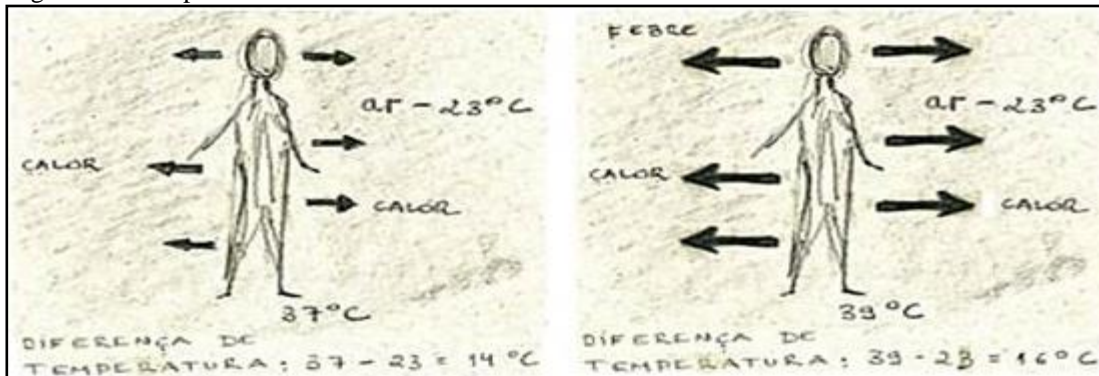 CALOR
ar - 23°C
CALOR
37°C
DIFERENÇA DE
TEMPERATURA: 37 - 23 = 14°C
FEBRE
ar - 23°C
CALOR
CALOR
39°C
DIFERENÇA DE
TEMPERATURA: 39 - 23 = 16°C